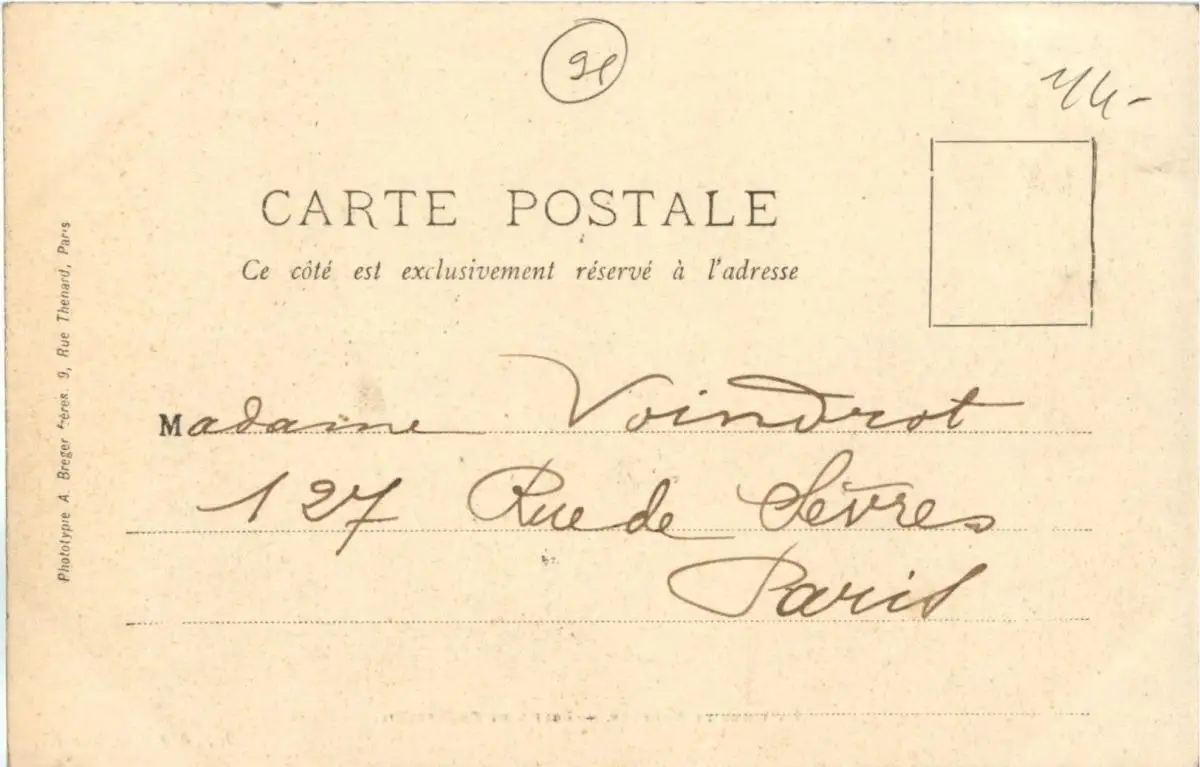 91
CARTE POSTALE
Ce côté est exclusivement réservé à l'adresse
Phototypie A. Breger frères. 9, Rue Thenard, Paris
Madame Voindrot
127 Rue de Sèvres
Paris